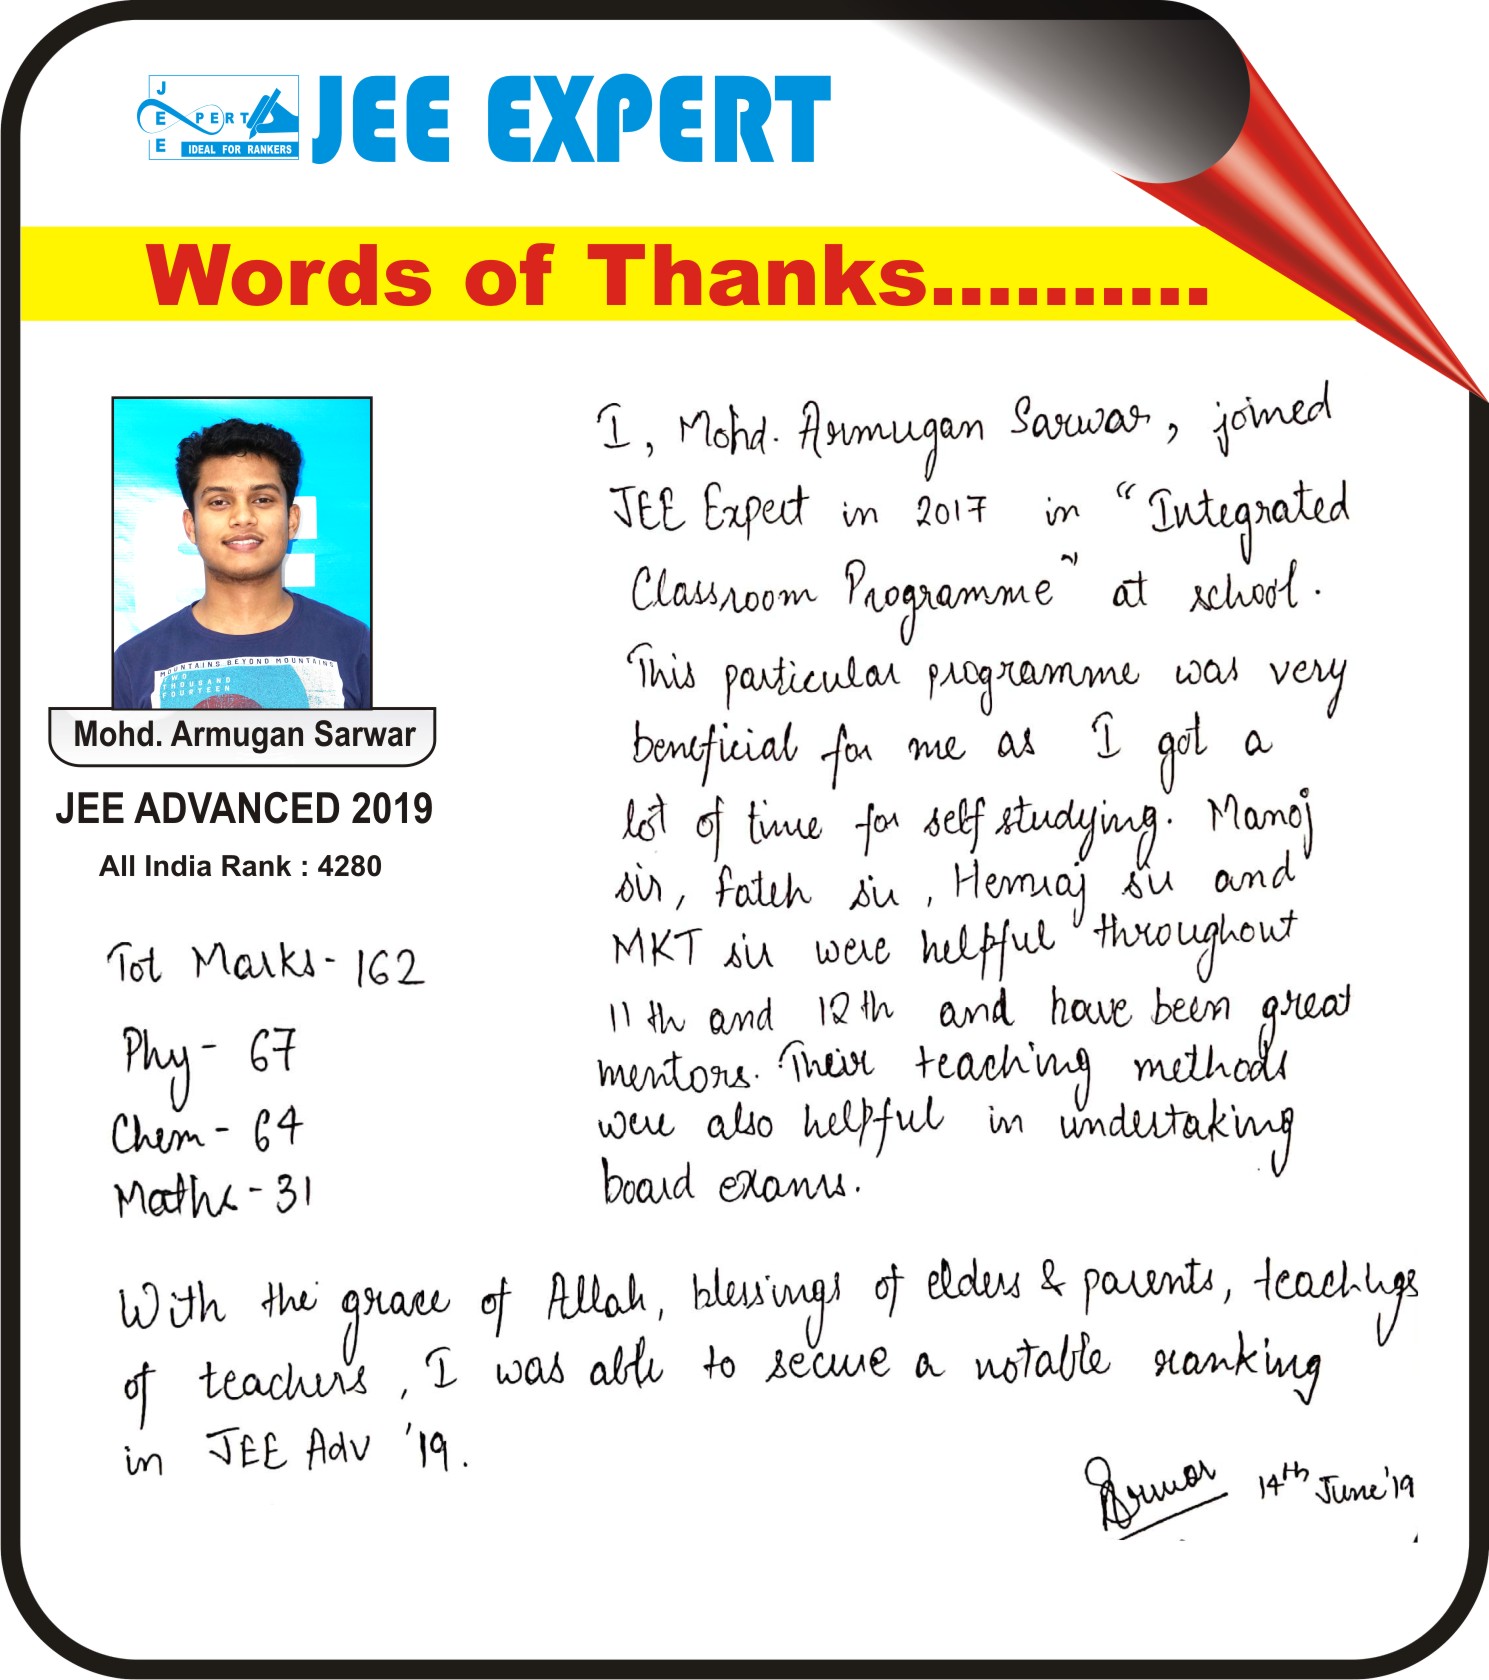 JEE EXPERT
IDEAL FOR RANKERS
JEE EXPERT
Words of Thanks..........
MOUNTAINS BEYOND MOUNTAINS
TWO
THOUSAND
FOURTEEN
Mohd. Armugan Sarwar
JEE ADVANCED 2019
All India Rank : 4280
Tot Marks - 162
Phy - 67
Chem - 64
Maths - 31
I, Mohd. Armugan Sarwar, joined
JEE Expert in 2017 in "Integrated
Classroom Programme" at school.
This particular programme was very
beneficial for me as I got a
lot of time for self studying. Manoj
sir, Fateh sir, Hemraj sir and
MKT sir were helpful throughout
11th and 12th and have been great
mentors. Their teaching methods
were also helpful in undertaking
board exams.
With the grace of Allah, blessings of elders & parents, teachigs
of teachers, I was able to secure a notable ranking
in JEE Adv '19.
14th June'19